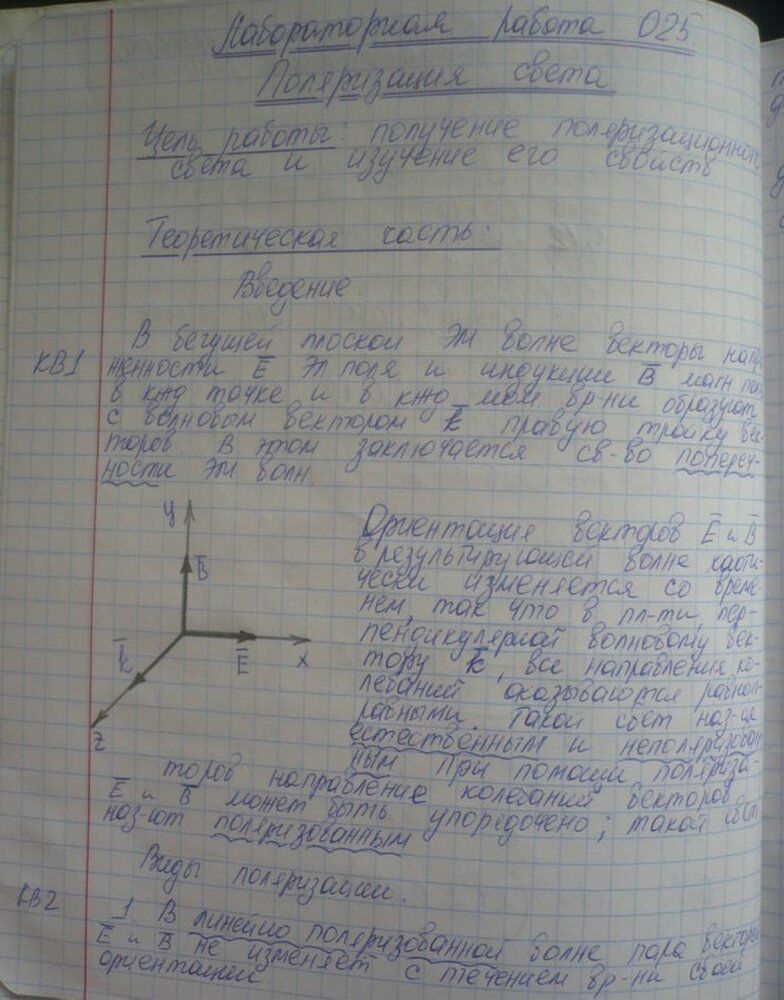 Лабораторная работа 025.
Поляризация света
Цель работы: получение поляризационного
света и изучение его свойств
Теоретическая часть:
Введение.
КВ1
В бегущей плоской ЭМ волне векторы напря-
женности E эл поля и индукции B магн поля
в кжд точке и в кжд мом вр-ни образуют
с волновым вектором k правую тройку век-
торов. В этом заключается св-во попереч-
ности ЭМ волн.
y
B
k
E
x
z
Ориентация векторов E и B
в результирующей волне хаоти-
чески изменяется со време-
нем, так что в пл-ти пер-
пендикулярной волновому век-
тору k, все направления ко-
лебаний оказываются равноп-
равными. Такой свет наз-ся
естественным и неполяризован-
ным. При помощи поляриза-
торов направление колебаний векторов
E и B может быть упорядочено; такой свет
наз-ют поляризованным
Виды поляризации.
КВ2
1. В линейно поляризованной волне пара векторов
E и B не изменяет с течением вр-ни своей
ориентации